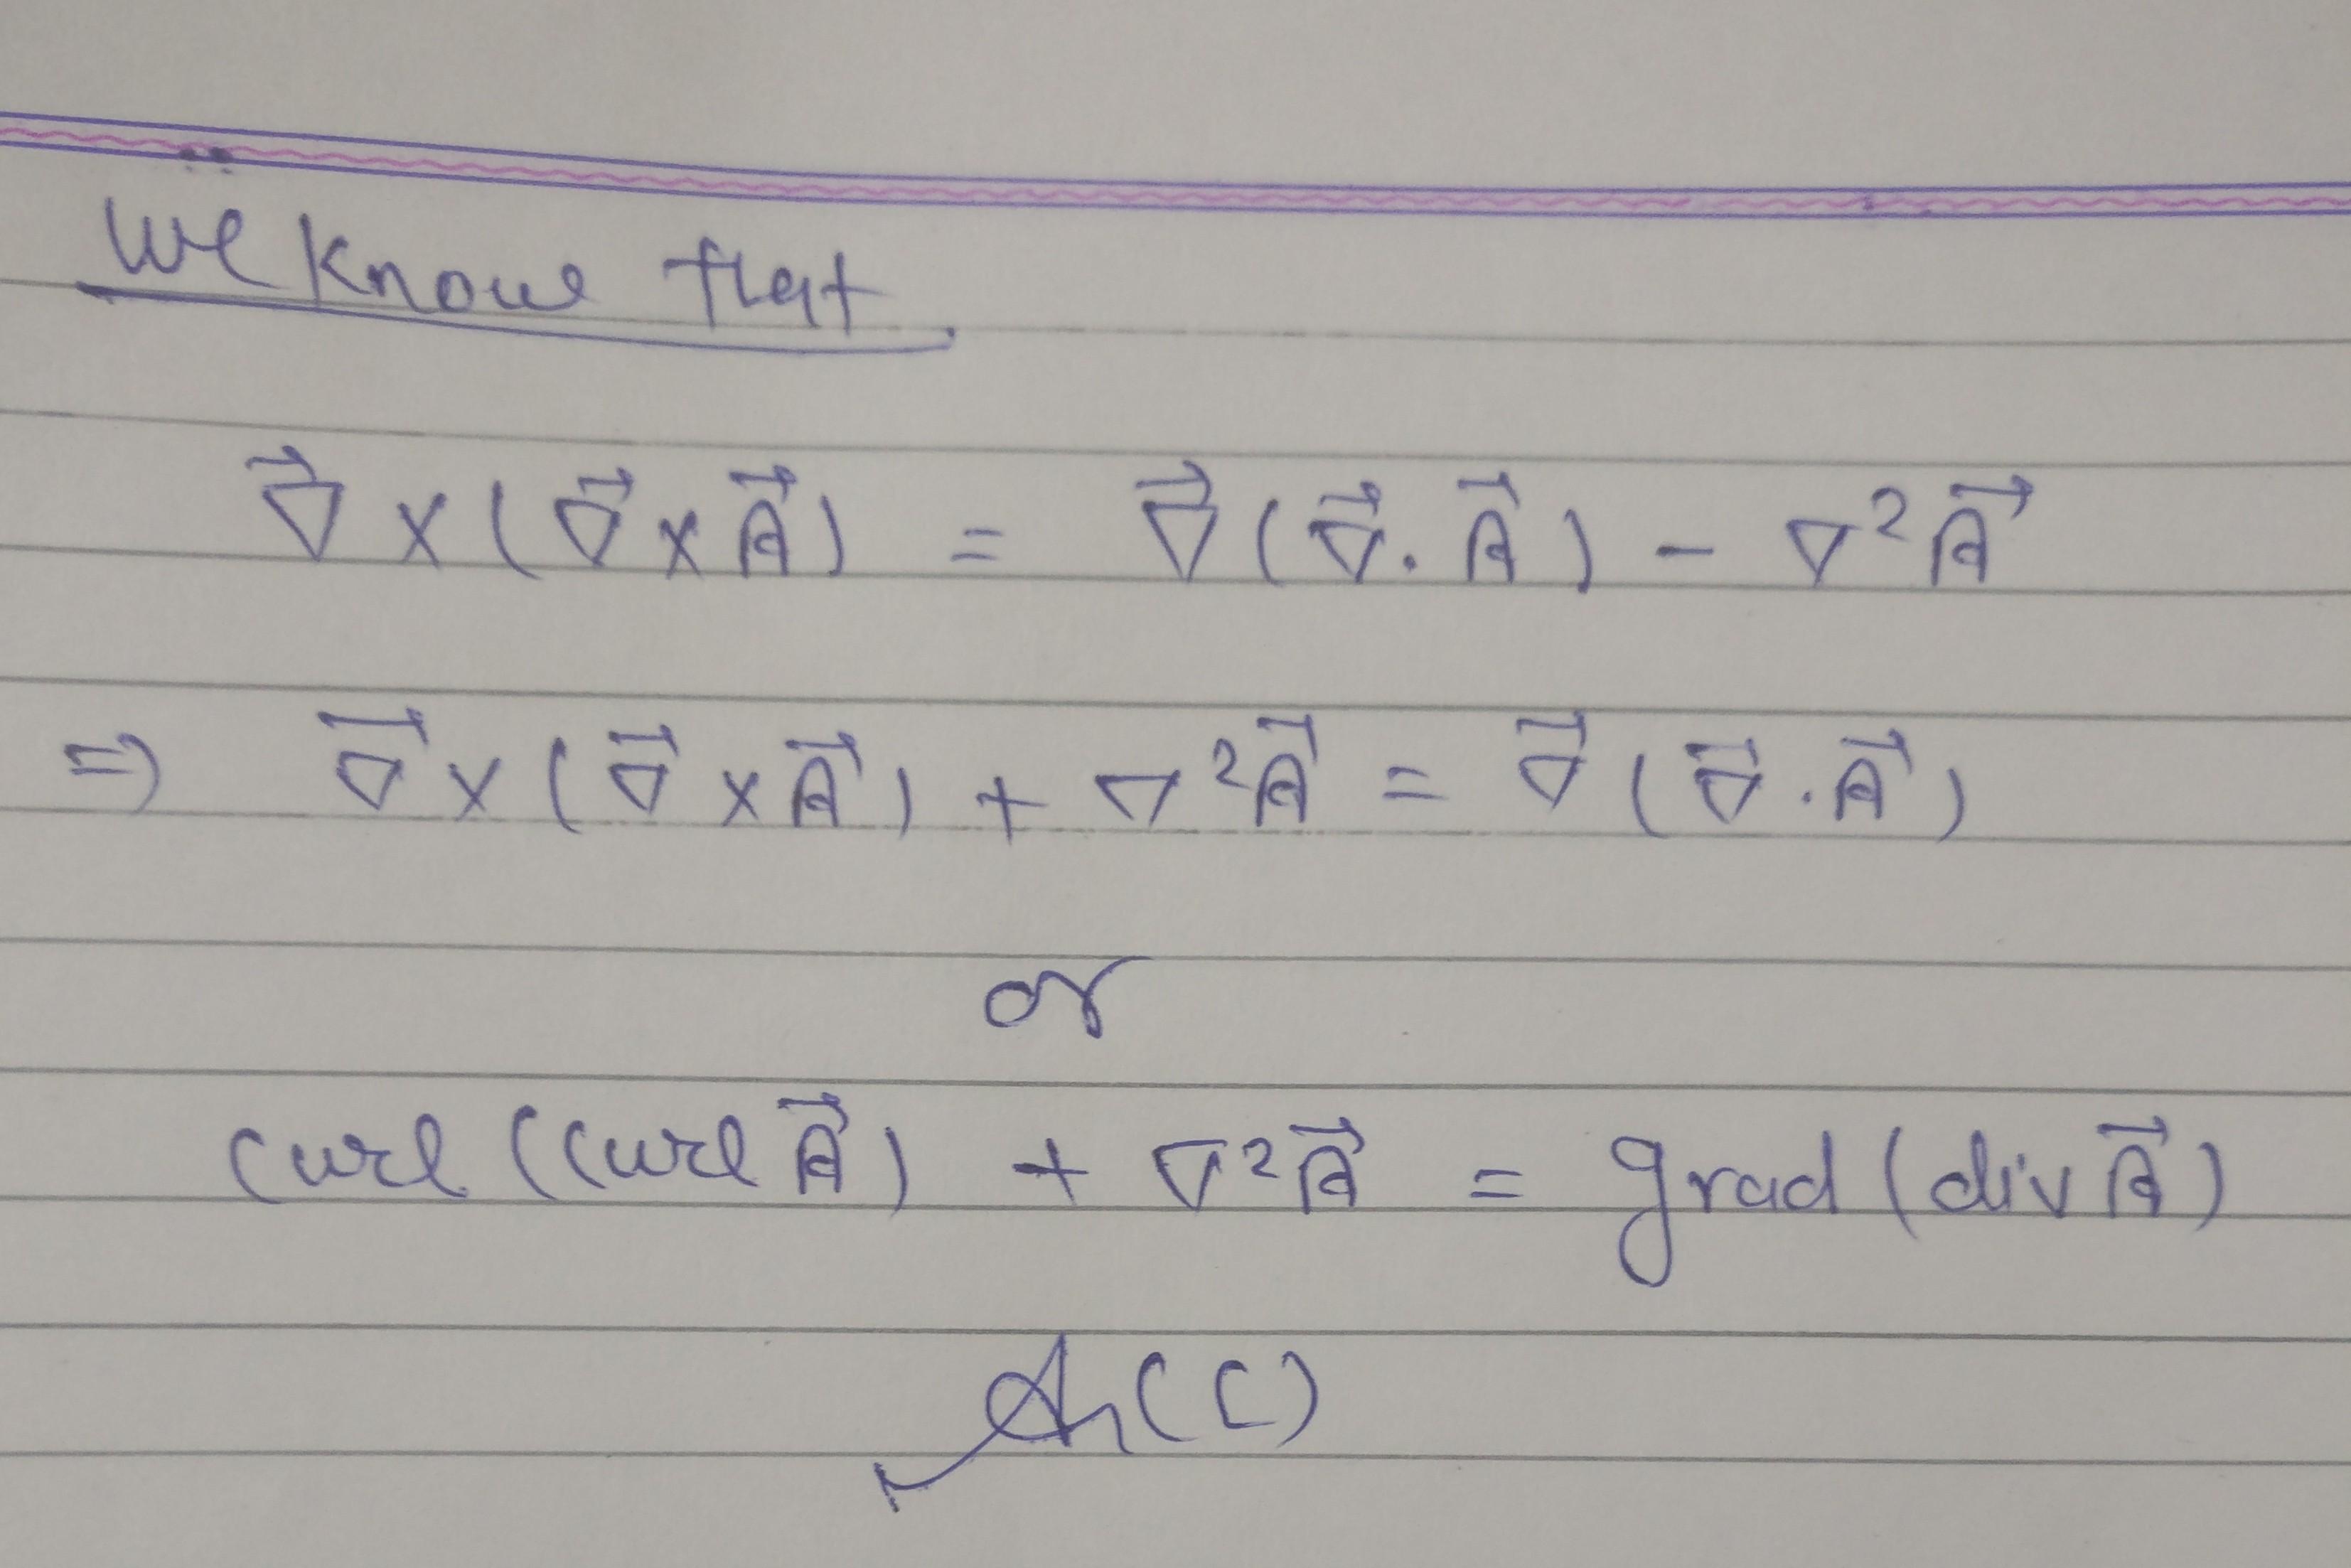 We know that
∇⃗ × (∇⃗ × A⃗) = ∇⃗ (∇⃗ . A⃗) - ∇²A⃗
⇒ ∇⃗ × (∇⃗ × A⃗) + ∇²A⃗ = ∇⃗ (∇⃗ . A⃗)
or
curl (curl A⃗) + ∇²A⃗ = grad (div A⃗)
An (C)